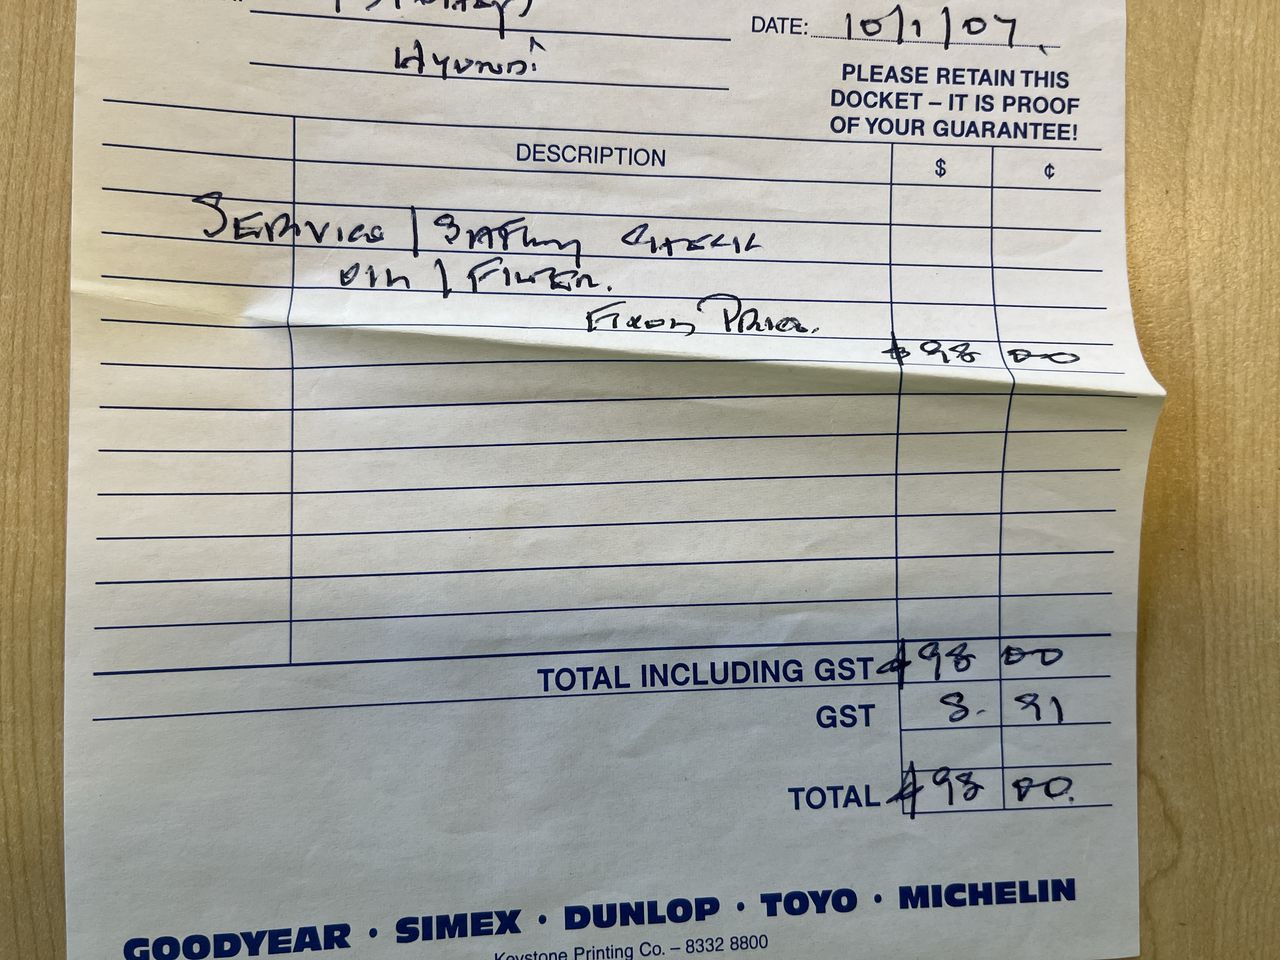 DATE: 10/1/07
Hyundai
PLEASE RETAIN THIS
DOCKET – IT IS PROOF
OF YOUR GUARANTEE!
DESCRIPTION $ ¢
SERVICE / SAFETY CHECK
OIL / FILTER.
FIXED PRICE.
$98 00
TOTAL INCLUDING GST $98 00
GST 8. 91
TOTAL $98 00.
GOODYEAR · SIMEX · DUNLOP · TOYO · MICHELIN
Keystone Printing Co. – 8332 8800